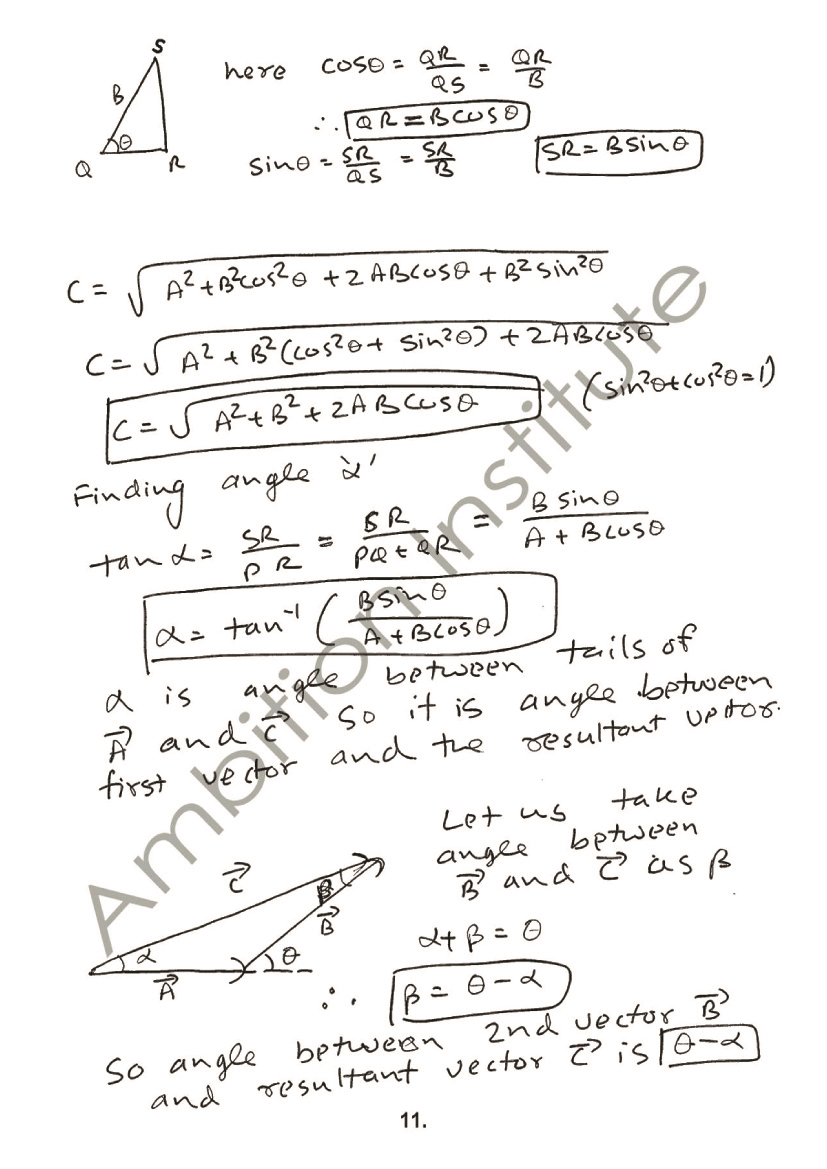 S
B
θ
Q R
here cosθ = QR/QS = QR/B
∴ QR = B cosθ
sinθ = SR/QS = SR/B SR = B sinθ
C = √(A² + B²cos²θ + 2ABcosθ + B²sin²θ)
C = √(A² + B²(cos²θ + sin²θ) + 2ABcosθ)
C = √(A² + B² + 2ABcosθ) (sin²θ + cos²θ = 1)
Finding angle 'α'
tan α = SR/PR = SR/(PQ + QR) = B sinθ/(A + B cosθ)
α = tan⁻¹ (B sinθ/(A + B cosθ))
α is angle between tails of
A⃗ and C⃗ so it is angle between
first vector and the resultant vector.
Let us take
angle between
B⃗ and C⃗ as β
C⃗
β
B⃗
α θ
A⃗
α + β = θ
∴ β = θ - α
So angle between 2nd vector B⃗
and resultant vector C⃗ is θ-α
11.
Ambition Institute